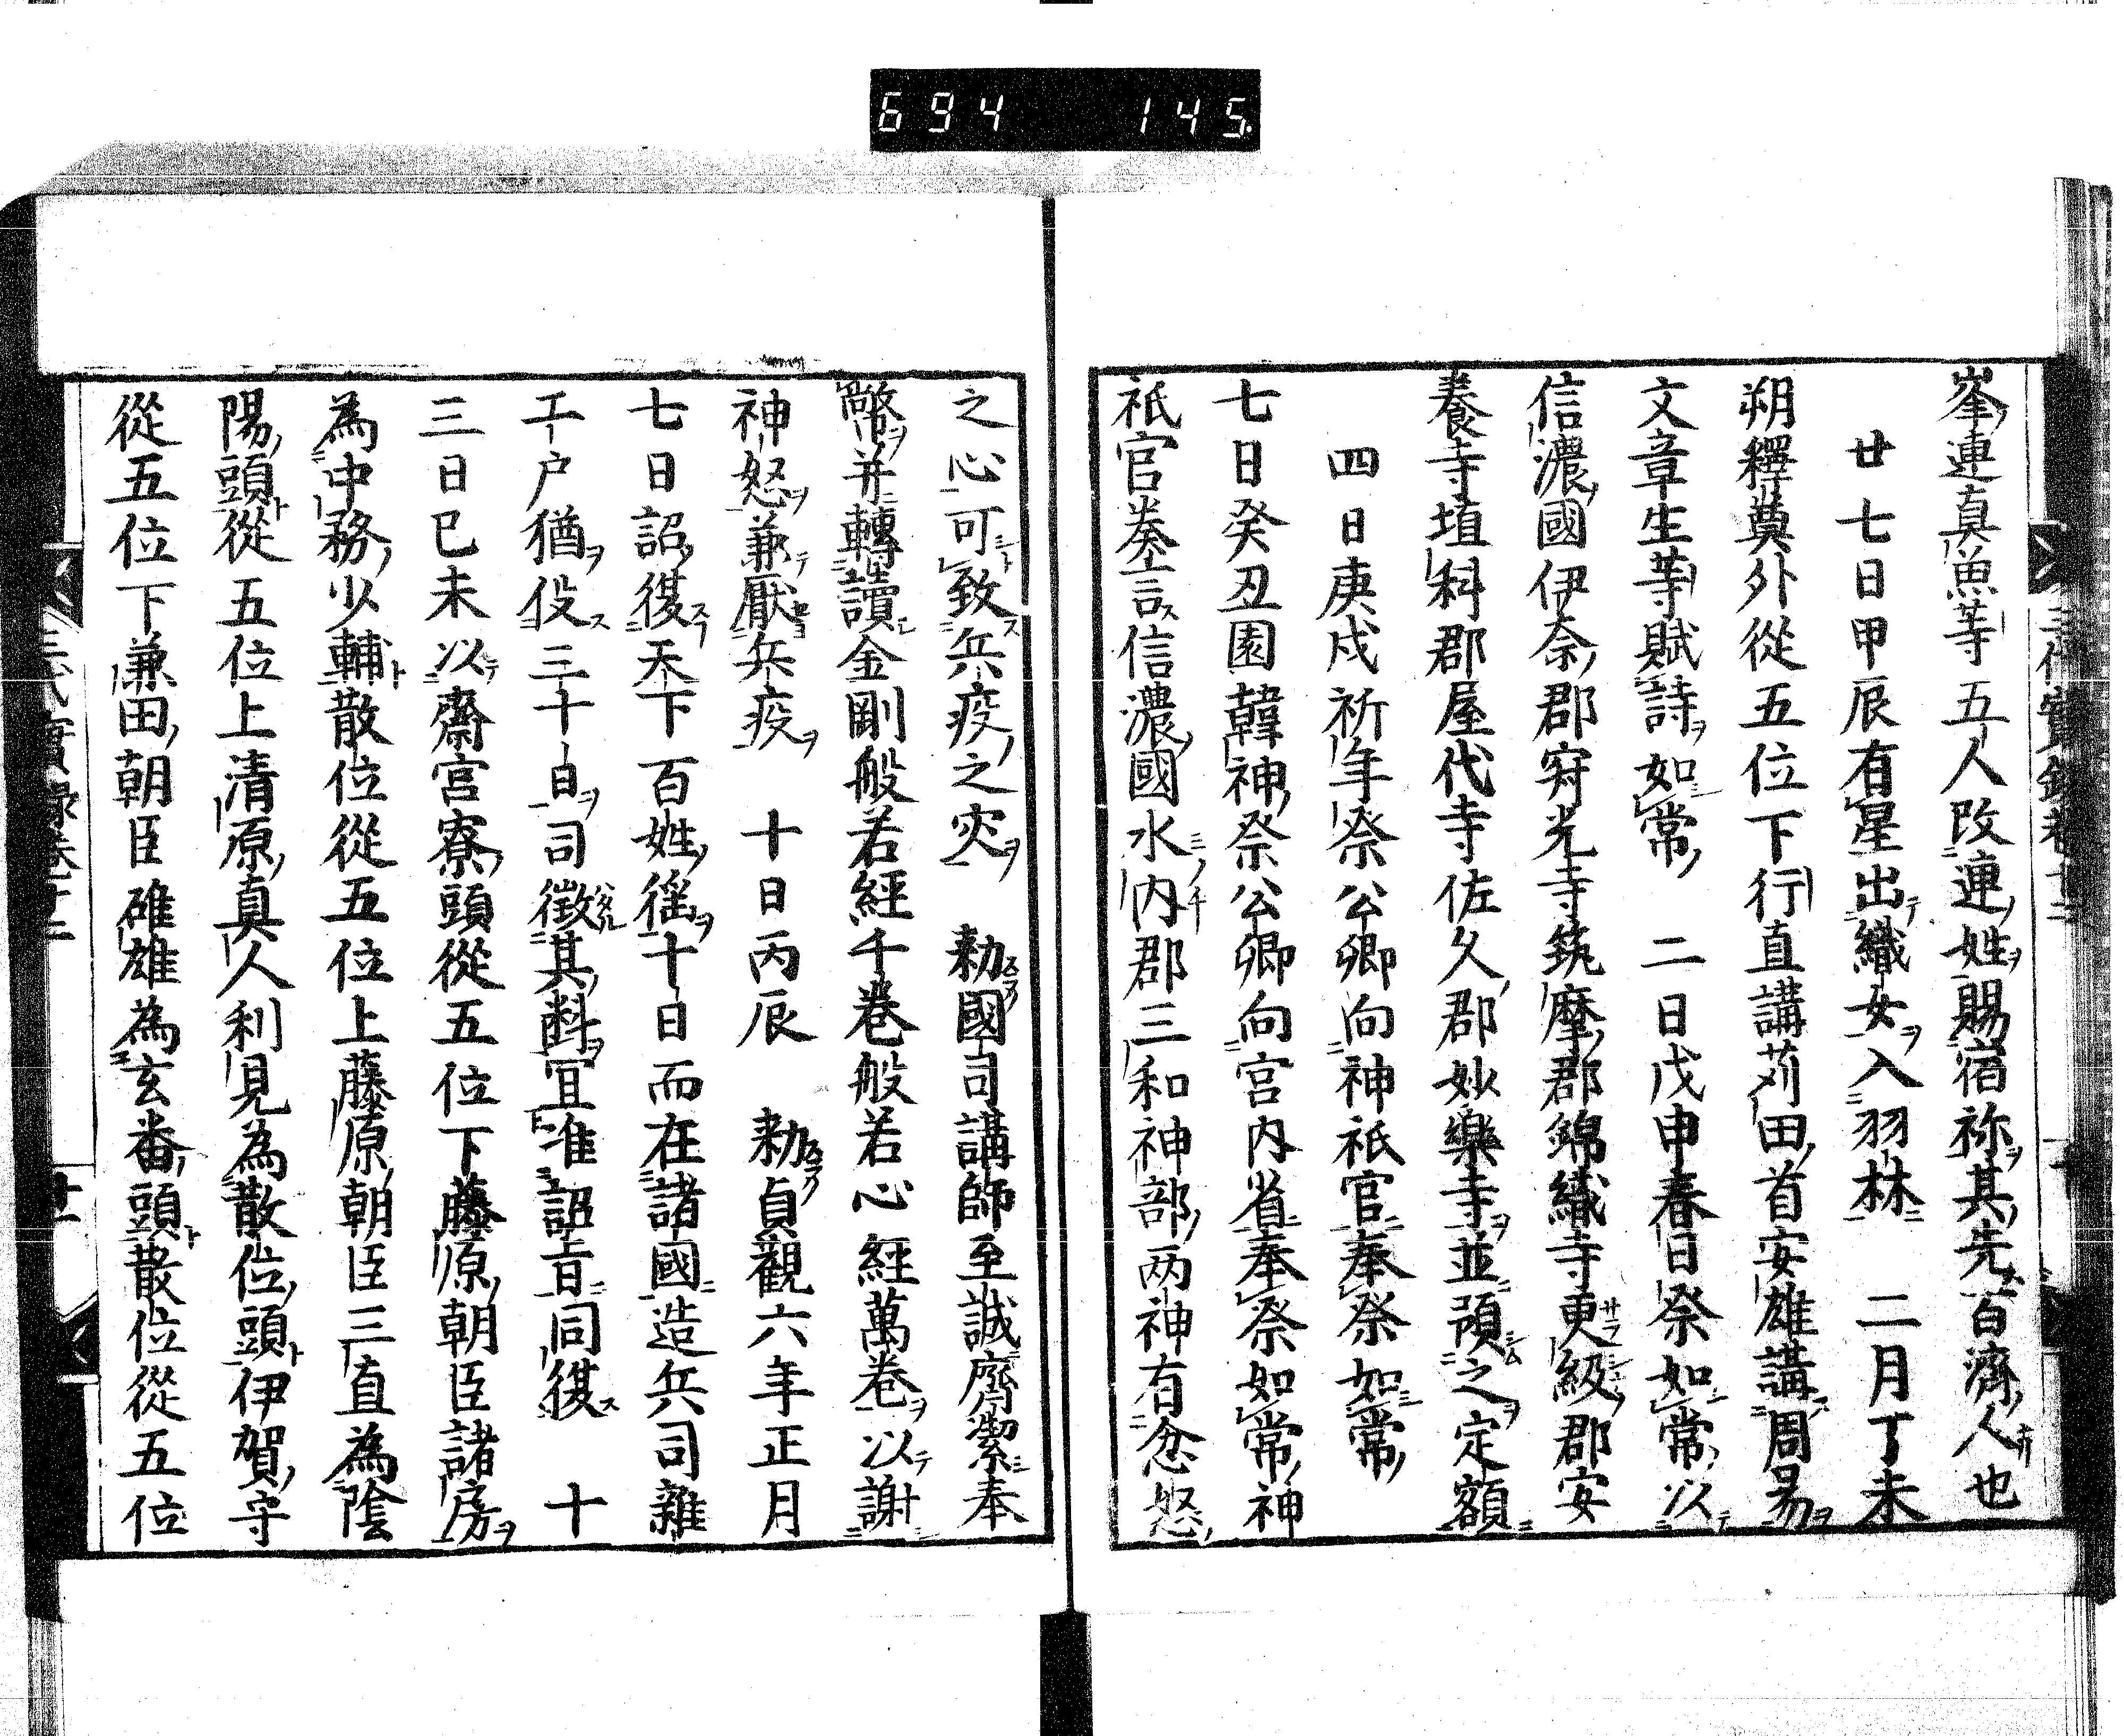 694 145
峯連真魚等五人改連姓賜宿祢其先百濟人也
廿七日甲辰有星出織女入羽林 二月丁未
朔釋奠外從五位下行直講苅田首安雄講周昜
文章生等賦詩如常 二日戊申春日祭如常以
信濃國伊奈郡寂光寺筑摩郡錦織寺更級郡安
養寺埴科郡屋代寺佐久郡妙樂寺並預之定額
四日庚戌祈年祭公卿向神祇官奉祭如常
七日癸丑園韓神祭公卿向宮内省奉祭如常神
祇官奏言信濃國水内郡三和神部兩神有忿怒
之心可致兵疫之灾 勑國司講師至誠齊潔奉
幣并轉讀金剛般若經千卷般若心經萬卷以謝
神怒兼厭兵疫 十日丙辰 勑貞觀六年正月
七日詔復天下百姓徭十日而在諸國造兵司雜
工户猶役三十日司徵其料宜准詔旨同復 十
三日己未以齋宮寮頭從五位下藤原朝臣諸房
為中務少輔散位從五位上藤原朝臣三直為陰
陽頭從五位上清原真人利見為散位頭伊賀守
從五位下兼田朝臣碓雄為玄番頭散位從五位
三代實録卷十二